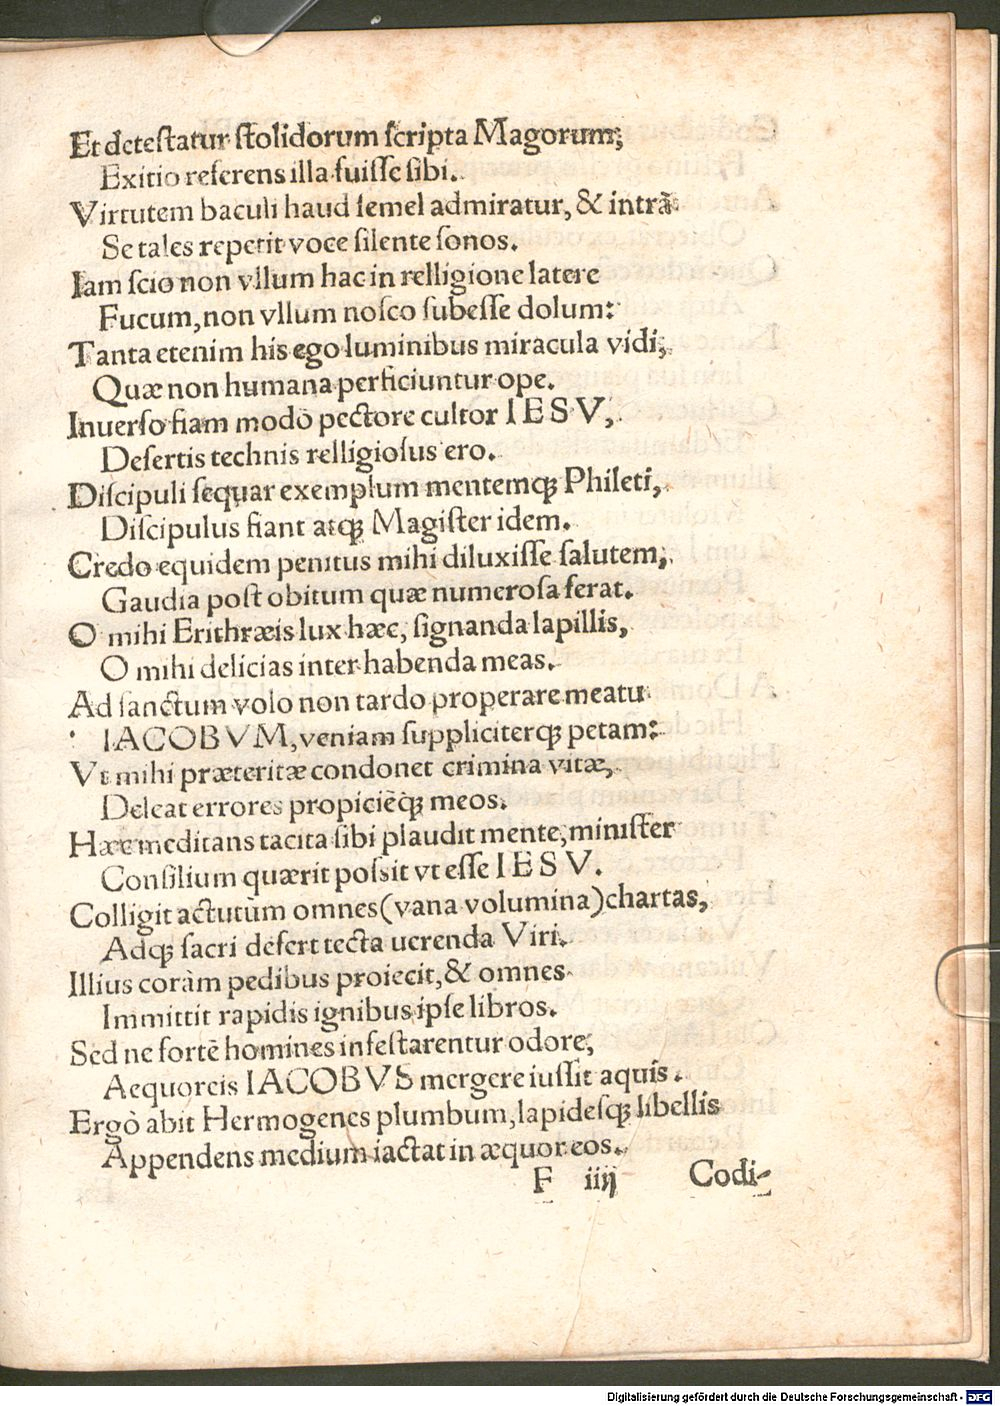 Et detestatur stolidorum scripta Magorum;
Exitio referens illa fuisse sibi.
Virtutem baculi haud semel admiratur, & intrã
Se tales repetit voce silente sonos.
Iam scio non vllum hac in relligione latere
Fucum, non vllum nosco subesse dolum:
Tanta etenim his ego luminibus miracula vidi,
Quæ non humana perficiuntur ope.
Inuerso fiam modò pectore cultor IESV,
Desertis technis relligiosus ero.
Discipuli sequar exemplum mentemq; Phileti,
Discipulus fiant atq; Magister idem.
Credo equidem penitus mihi diluxisse salutem,
Gaudia post obitum quæ numerosa ferat.
O mihi Erithræis lux hæc, signanda lapillis,
O mihi delicias inter habenda meas.
Ad sanctum volo non tardo properare meatu
IACOBVM, veniam suppliciterq; petam:
Vt mihi præteritæ condonet crimina vitæ,
Deleat errores propiciẽq; meos.
Hæc meditans tacita sibi plaudit mente, minister
Consilium quærit possit vt esse IESV.
Colligit actutùm omnes (vana volumina) chartas,
Adq; sacri defert tecta uerenda Viri.
Illius coràm pedibus proiecit, & omnes
Immittit rapidis ignibus ipse libros.
Sed ne fortè homines infestarentur odore,
Aequoreis IACOBVS mergere iussit aquis.
Ergò abit Hermogenes plumbum, lapidesq; libellis
Appendens medium iactat in æquor eos.
F iiij Codi-
Digitalisierung gefördert durch die Deutsche Forschungsgemeinschaft - DFG